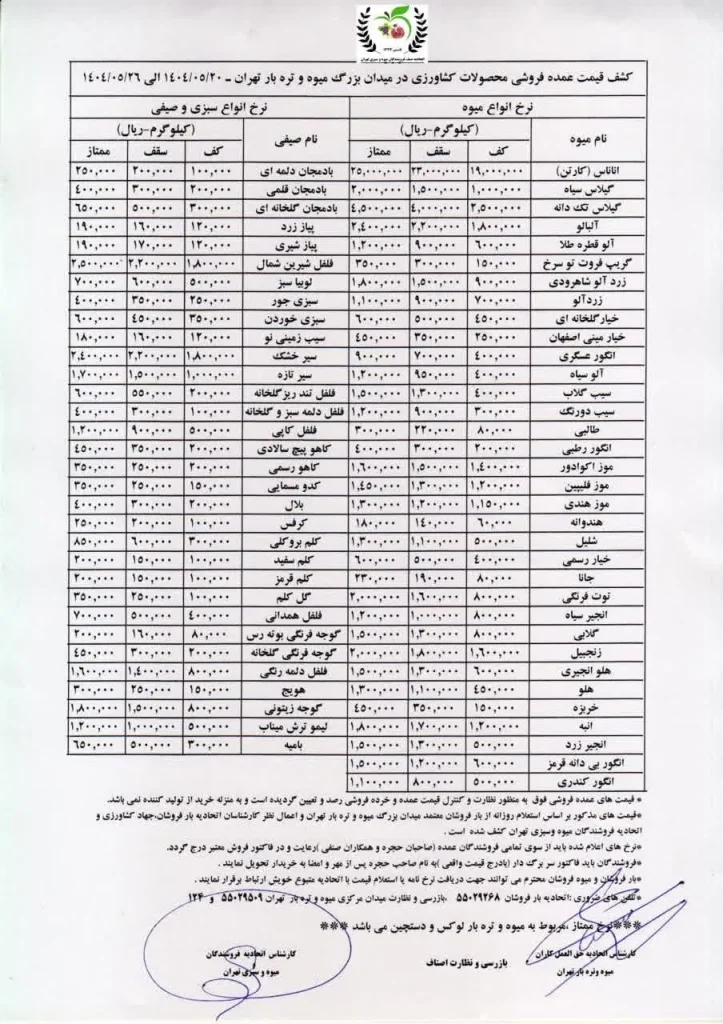 کشف قیمت عمده فروشی محصولات کشاورزی در میدان بزرگ میوه و تره بار تهران ـ ۱۴۰۴/۰۵/۲۰ الی ۱۴۰۴/۰۵/۲۶
نرخ انواع میوه نرخ انواع سبزی و صیفی
نام میوه (کیلوگرم-ریال) نام صیفی (کیلوگرم-ریال)
کف سقف ممتاز کف سقف ممتاز
اناناس (کارتن) ۱۹,۰۰۰,۰۰۰ ۲۳,۰۰۰,۰۰۰ ۲۵,۰۰۰,۰۰۰ بادمجان دلمه ای ۱۰۰,۰۰۰ ۲۰۰,۰۰۰ ۲۵۰,۰۰۰
گیلاس سیاه ۱,۰۰۰,۰۰۰ ۱,۵۰۰,۰۰۰ ۲,۰۰۰,۰۰۰ بادمجان قلمی ۲۰۰,۰۰۰ ۳۰۰,۰۰۰ ۴۰۰,۰۰۰
گیلاس تک دانه ۲,۵۰۰,۰۰۰ ۴,۰۰۰,۰۰۰ ۴,۵۰۰,۰۰۰ بادمجان گلخانه ای ۳۰۰,۰۰۰ ۵۰۰,۰۰۰ ۶۵۰,۰۰۰
آلبالو ۱,۸۰۰,۰۰۰ ۲,۲۰۰,۰۰۰ ۲,۴۰۰,۰۰۰ پیاز زرد ۱۲۰,۰۰۰ ۱۶۰,۰۰۰ ۱۹۰,۰۰۰
آلو قطره طلا ۶۰۰,۰۰۰ ۹۰۰,۰۰۰ ۱,۲۰۰,۰۰۰ پیاز شیری ۱۲۰,۰۰۰ ۱۷۰,۰۰۰ ۱۹۰,۰۰۰
گریپ فروت تو سرخ ۱۵۰,۰۰۰ ۳۰۰,۰۰۰ ۳۵۰,۰۰۰ فلفل شیرین شمال ۱,۸۰۰,۰۰۰ ۲,۲۰۰,۰۰۰ ۲,۵۰۰,۰۰۰
زرد آلو شاهرودی ۹۰۰,۰۰۰ ۱,۵۰۰,۰۰۰ ۱,۸۰۰,۰۰۰ لوبیا سبز ۵۰۰,۰۰۰ ۶۰۰,۰۰۰ ۷۰۰,۰۰۰
زردآلو ۷۰۰,۰۰۰ ۹۰۰,۰۰۰ ۱,۱۰۰,۰۰۰ سبزی جور ۲۵۰,۰۰۰ ۳۵۰,۰۰۰ ۴۰۰,۰۰۰
خیارگلخانه ای ۴۵۰,۰۰۰ ۵۰۰,۰۰۰ ۶۰۰,۰۰۰ سبزی خوردن ۳۵۰,۰۰۰ ۴۵۰,۰۰۰ ۶۰۰,۰۰۰
خیار مینی اصفهان ۲۵۰,۰۰۰ ۳۵۰,۰۰۰ ۴۵۰,۰۰۰ سیب زمینی نو ۱۲۰,۰۰۰ ۱۶۰,۰۰۰ ۱۸۰,۰۰۰
انگور عسگری ۴۰۰,۰۰۰ ۷۰۰,۰۰۰ ۹۰۰,۰۰۰ سیر خشک ۱,۸۰۰,۰۰۰ ۲,۲۰۰,۰۰۰ ۲,۴۰۰,۰۰۰
آلو سیاه ۴۰۰,۰۰۰ ۹۵۰,۰۰۰ ۱,۲۰۰,۰۰۰ سیر تازه ۱,۰۰۰,۰۰۰ ۱,۵۰۰,۰۰۰ ۱,۷۰۰,۰۰۰
سیب گلاب ۴۰۰,۰۰۰ ۱,۳۰۰,۰۰۰ ۱,۵۰۰,۰۰۰ فلفل تند ریزگلخانه ۲۰۰,۰۰۰ ۵۵۰,۰۰۰ ۶۰۰,۰۰۰
سیب دورنگ ۳۰۰,۰۰۰ ۹۰۰,۰۰۰ ۱,۲۰۰,۰۰۰ فلفل دلمه سبز و گلخانه ۱۰۰,۰۰۰ ۳۰۰,۰۰۰ ۴۰۰,۰۰۰
طالبی ۸۰,۰۰۰ ۲۲۰,۰۰۰ ۳۰۰,۰۰۰ فلفل کاپی ۵۰۰,۰۰۰ ۹۰۰,۰۰۰ ۱,۲۰۰,۰۰۰
انگور رطبی ۲۰۰,۰۰۰ ۳۰۰,۰۰۰ ۴۰۰,۰۰۰ کاهو پیچ سالادی ۲۰۰,۰۰۰ ۳۵۰,۰۰۰ ۴۵۰,۰۰۰
موز اکوادور ۱,۴۰۰,۰۰۰ ۱,۵۰۰,۰۰۰ ۱,۶۰۰,۰۰۰ کاهو رسمی ۲۰۰,۰۰۰ ۲۵۰,۰۰۰ ۳۵۰,۰۰۰
موز فلیپین ۱,۲۰۰,۰۰۰ ۱,۳۰۰,۰۰۰ ۱,۴۵۰,۰۰۰ کدو مسمایی ۱۵۰,۰۰۰ ۲۵۰,۰۰۰ ۳۵۰,۰۰۰
موز هندی ۱,۱۵۰,۰۰۰ ۱,۲۰۰,۰۰۰ ۱,۳۰۰,۰۰۰ بلال ۲۰۰,۰۰۰ ۳۰۰,۰۰۰ ۴۰۰,۰۰۰
هندوانه ۶۰,۰۰۰ ۱۴۰,۰۰۰ ۱۸۰,۰۰۰ کرفس ۱۰۰,۰۰۰ ۲۰۰,۰۰۰ ۲۵۰,۰۰۰
شلیل ۵۰۰,۰۰۰ ۱,۱۰۰,۰۰۰ ۱,۳۰۰,۰۰۰ کلم بروکلی ۳۰۰,۰۰۰ ۶۰۰,۰۰۰ ۸۵۰,۰۰۰
خیار رسمی ۴۰۰,۰۰۰ ۵۰۰,۰۰۰ ۶۰۰,۰۰۰ کلم سفید ۱۰۰,۰۰۰ ۱۵۰,۰۰۰ ۲۰۰,۰۰۰
جانا ۸۰,۰۰۰ ۱۹۰,۰۰۰ ۲۳۰,۰۰۰ کلم قرمز ۱۰۰,۰۰۰ ۱۵۰,۰۰۰ ۲۰۰,۰۰۰
توت فرنگی ۸۰۰,۰۰۰ ۱,۶۰۰,۰۰۰ ۲,۰۰۰,۰۰۰ گل کلم ۱۰۰,۰۰۰ ۲۵۰,۰۰۰ ۳۵۰,۰۰۰
انجیر سیاه ۸۰۰,۰۰۰ ۱,۰۰۰,۰۰۰ ۱,۲۰۰,۰۰۰ فلفل همدانی ۴۰۰,۰۰۰ ۵۰۰,۰۰۰ ۷۰۰,۰۰۰
گلابی ۸۰۰,۰۰۰ ۱,۳۰۰,۰۰۰ ۱,۵۰۰,۰۰۰ گوجه فرنگی بوته رس ۸۰,۰۰۰ ۱۶۰,۰۰۰ ۲۰۰,۰۰۰
زنجبیل ۱,۶۰۰,۰۰۰ ۱,۸۰۰,۰۰۰ ۲,۰۰۰,۰۰۰ گوجه فرنگی گلخانه ۲۰۰,۰۰۰ ۳۰۰,۰۰۰ ۴۵۰,۰۰۰
هلو انجیری ۶۰۰,۰۰۰ ۱,۳۰۰,۰۰۰ ۱,۵۰۰,۰۰۰ فلفل دلمه رنگی ۸۰۰,۰۰۰ ۱,۴۰۰,۰۰۰ ۱,۶۰۰,۰۰۰
هلو ۴۵۰,۰۰۰ ۱,۱۰۰,۰۰۰ ۱,۳۰۰,۰۰۰ هویج ۱۵۰,۰۰۰ ۲۵۰,۰۰۰ ۳۰۰,۰۰۰
خربزه ۱۵۰,۰۰۰ ۳۵۰,۰۰۰ ۴۵۰,۰۰۰ گوجه زیتونی ۸۰۰,۰۰۰ ۱,۵۰۰,۰۰۰ ۱,۸۰۰,۰۰۰
انبه ۱,۲۰۰,۰۰۰ ۱,۷۰۰,۰۰۰ ۱,۸۰۰,۰۰۰ لیمو ترش میناب ۵۰۰,۰۰۰ ۱,۰۰۰,۰۰۰ ۱,۲۰۰,۰۰۰
انجیر زرد ۵۰۰,۰۰۰ ۱,۳۰۰,۰۰۰ ۱,۵۰۰,۰۰۰ بامیه ۳۰۰,۰۰۰ ۵۰۰,۰۰۰ ۶۵۰,۰۰۰
انگور بی دانه قرمز ۶۰۰,۰۰۰ ۱,۲۰۰,۰۰۰ ۱,۵۰۰,۰۰۰
انگور کندری ۵۰۰,۰۰۰ ۸۰۰,۰۰۰ ۱,۱۰۰,۰۰۰
* قیمت های عمده فروشی فوق به منظور نظارت و کنترل قیمت عمده و خرده فروشی رصد و تعیین گردیده است و به منزله خرید از تولید کننده نمی باشد.
*قیمت های مذکور بر اساس استعلام روزانه از بار فروشان معتمد میدان بزرگ میوه و تره بار تهران و اعمال نظر کارشناسان اتحادیه بار فروشان،جهاد کشاورزی و
اتحادیه فروشندگان میوه وسبزی تهران کشف شده است .
*نرخ های اعلام شده باید از سوی تمامی فروشندگان عمده (صاحبان حجره و همکاران صنفی )رعایت و در فاکتور فروش معتبر درج گردد.
*فروشندگان باید فاکتور سر برگ دار (بادرج قیمت واقعی )به نام صاحب حجره پس از مهر و امضا به خریدار تحویل نمایند .
*بار فروشان و میوه فروشان محترم می توانند جهت دریافت نرخ نامه یا استعلام قیمت با اتحادیه متبوع خویش ارتباط برقرار نمایند .
*تلفن های ضروری :اتحادیه بار فروشان ۵۵۰۲۹۲۶۸ ،بازرسی و نظارت میدان مرکزی میوه و تره بار تهران ۵۵۰۲۹۵۰۹ و ۱۲۴
***نرخ ممتاز ،مربوط به میوه و تره بار لوکس و دستچین می باشد ***
کارشناس اتحادیه حق العمل کاران بازرسی و نظارت اصناف کارشناس اتحادیه فروشندگان
میوه وتره بار تهران میوه و سبزی تهران